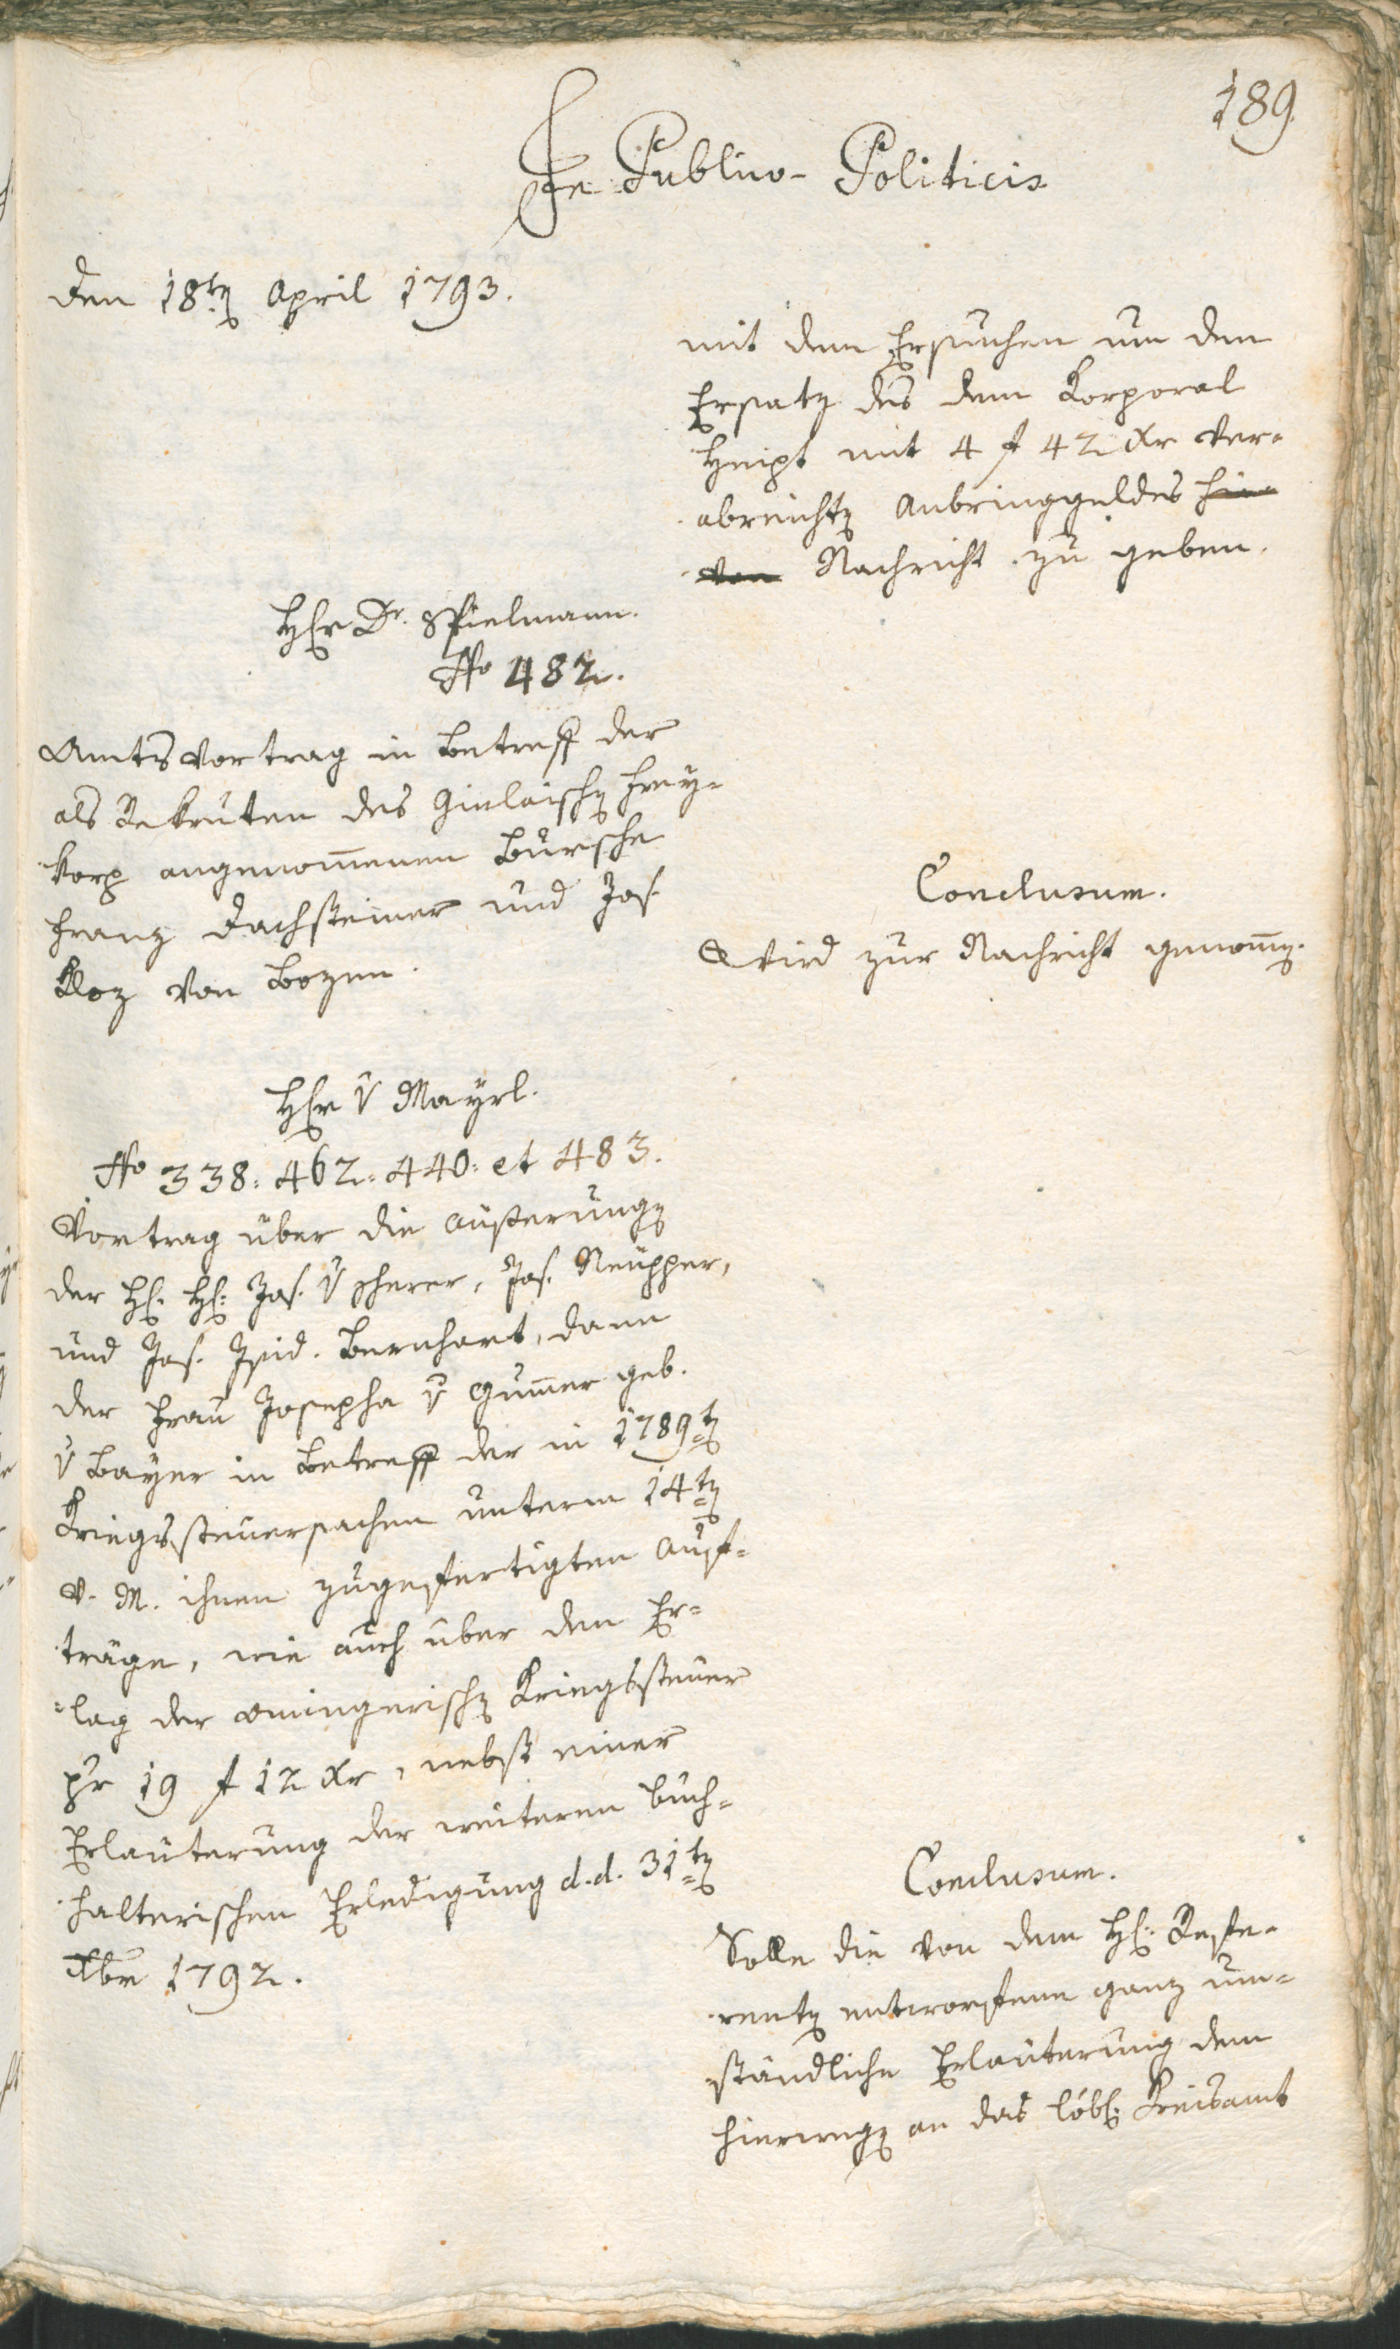 189
In Publico-Politicis
den 18t(en) April 1793.
mit dem Ersuchen um den
Ersatz des dem Korporal
mit 4 f 42 xr ver-
abreicht(en) Anbringgeldes hie-
von Nachricht zu geben.
H(er)r Dr. Spielmann.
No 482.
Amtsvortrag in Betreff der
als Rekruten des Giulaisch(en) Frey-
korp angenom̅enen Bursche
Franz Dachsteiner und Jos.
Kloz von Bozen.
Conclusum.
Wird zur Nachricht genom̅(en).
H(er)r v Mayrl.
No 338. 462. 440. et 483.
Vortrag über die Äußerung(en)
der H(erren) H(erren) Jos. v Scherer, Jos. Neupper,
und Jos. Isid. Bernhart, dann
der Frau Josepha v Gum̅er geb.
v Bayer in Betreff der in 1789t(en)
Kriegssteuersachen unterm 14t(en)
v. M. ihnen zugefertigten Auf-
träge, wie auch über den Er-
-lag der Kriegssteuer
pr 19 f 12 xr, nebst einer
Erläuterung der weiteren buch-
halterischen Erledigung d. d. 31t(en)
Xbr 1792.
Conclusum.
Solle die von dem H(errn) Refe-
rent(en) entworfene ganz um-
ständliche Erläuterung dem
hierweg(en) an das löbl: Kreisamt